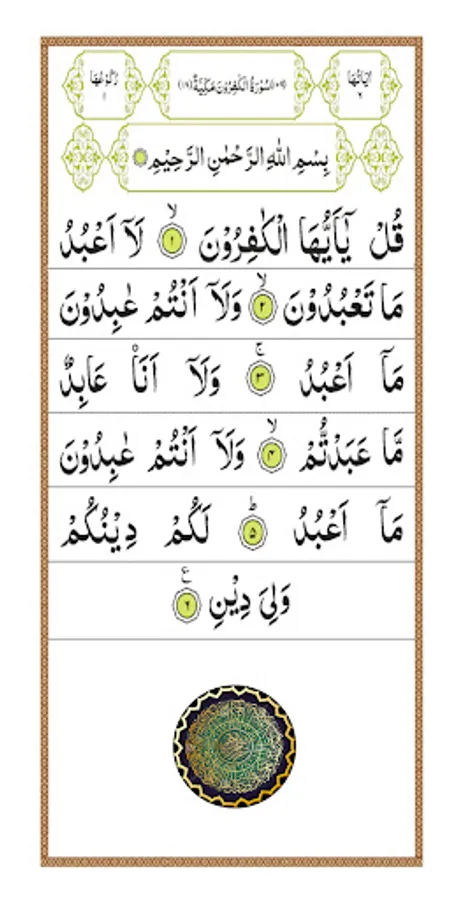 اٰیَاتُهَا ٦
(١٠٩) سُوْرَةُ الْكٰفِرُوْنَ مَكِّیَّةٌ (١٨)
رُكُوْعُهَا ١
بِسْمِ اللهِ الرَّحْمٰنِ الرَّحِیْمِ
قُلْ یٰۤاَیُّهَا الْكٰفِرُوْنَ ۙ‏﴿١﴾ لَاۤ اَعْبُدُ
مَا تَعْبُدُوْنَ ۙ‏﴿٢﴾ وَلَاۤ اَنْتُمْ عٰبِدُوْنَ
مَاۤ اَعْبُدُ ۚ‏﴿٣﴾ وَلَاۤ اَنَا۠ عَابِدٌ
مَّا عَبَدْتُّمْ ۙ‏﴿۴﴾ وَلَاۤ اَنْتُمْ عٰبِدُوْنَ
مَاۤ اَعْبُدُ ؕ‏﴿۵﴾ لَكُمْ دِیْنُكُمْ
وَلِیَ دِیْنِ ﴿٦﴾ ع